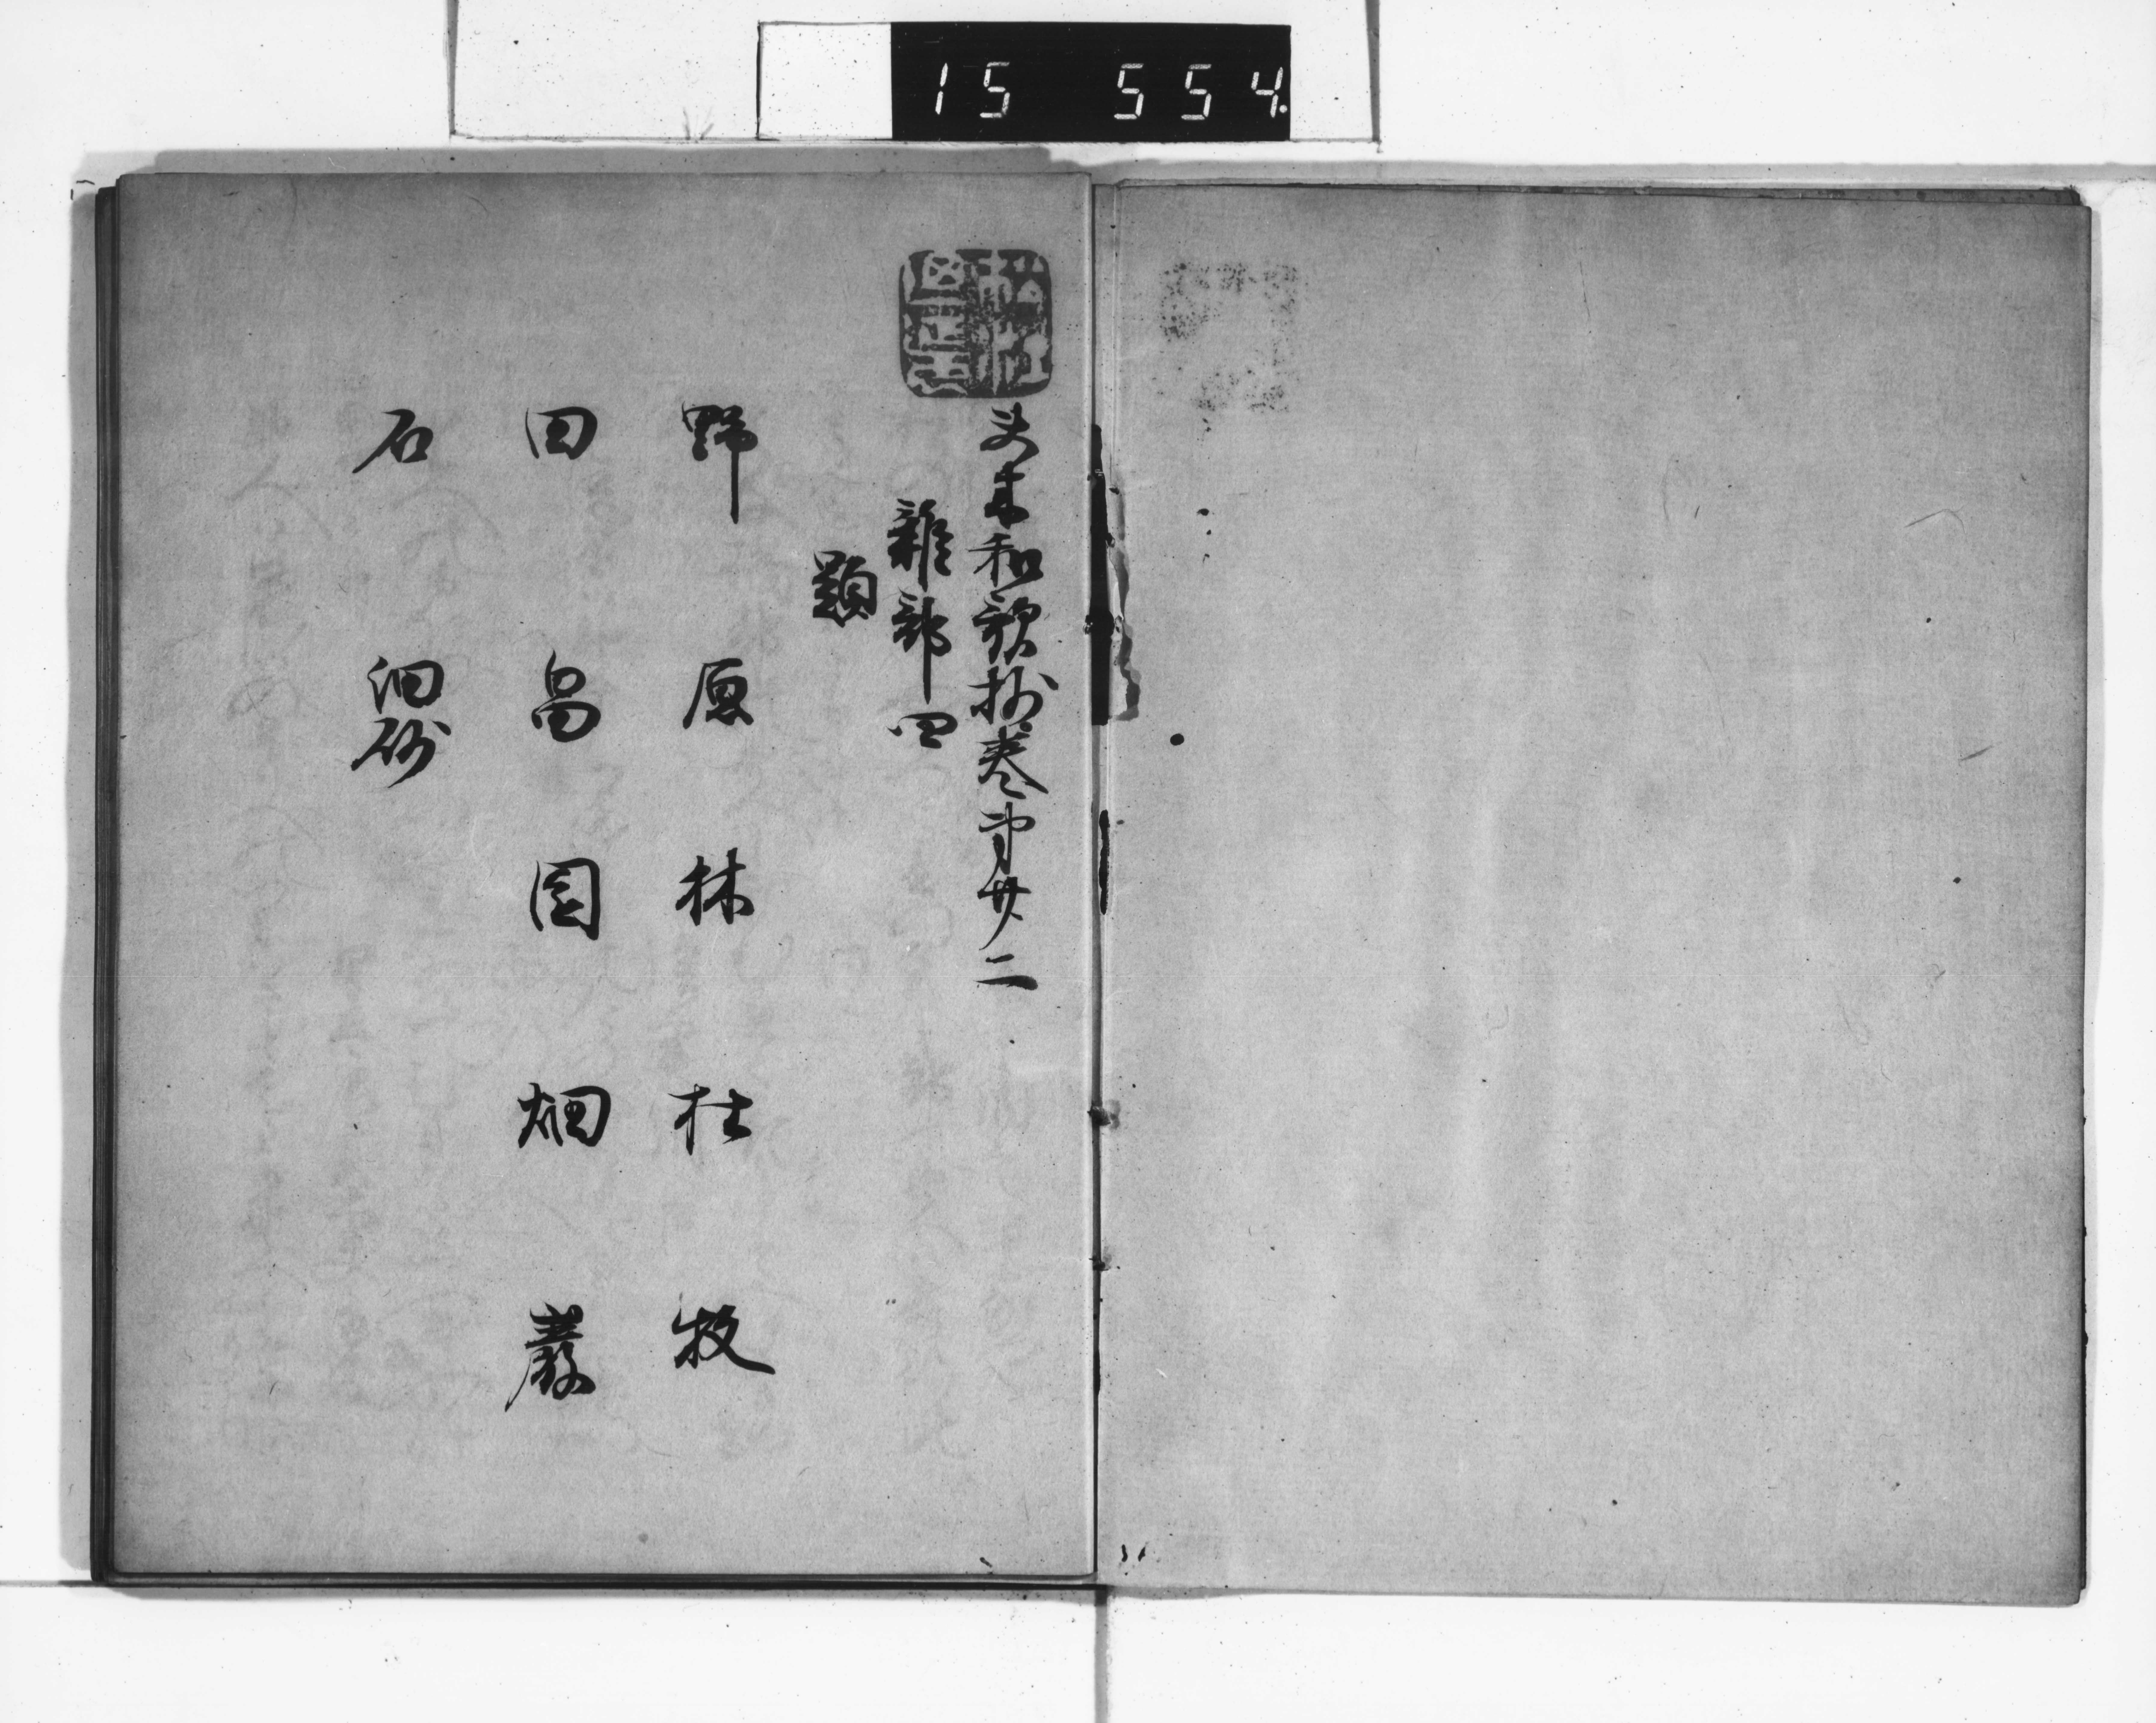 15 554.
夫木和歌抄巻第廿二
雑部四
題
野 原 林 杜 牧
田 畠 園 畑 巌
石 細砂